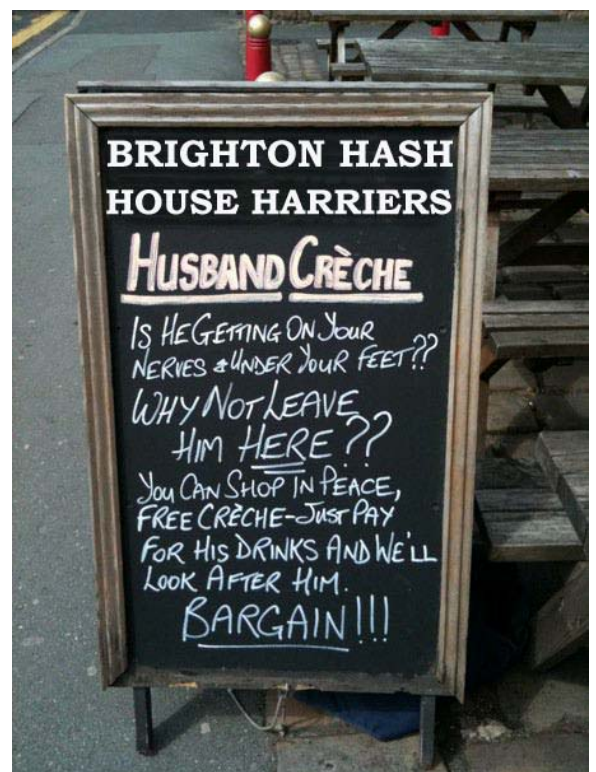 BRIGHTON HASH
HOUSE HARRIERS
HUSBAND CRÈCHE
IS HE GETTING ON YOUR
NERVES & UNDER YOUR FEET??
WHY NOT LEAVE
HIM HERE??
YOU CAN SHOP IN PEACE,
FREE CRÈCHE-JUST PAY
FOR HIS DRINKS AND WE'LL
LOOK AFTER HIM.
BARGAIN!!!